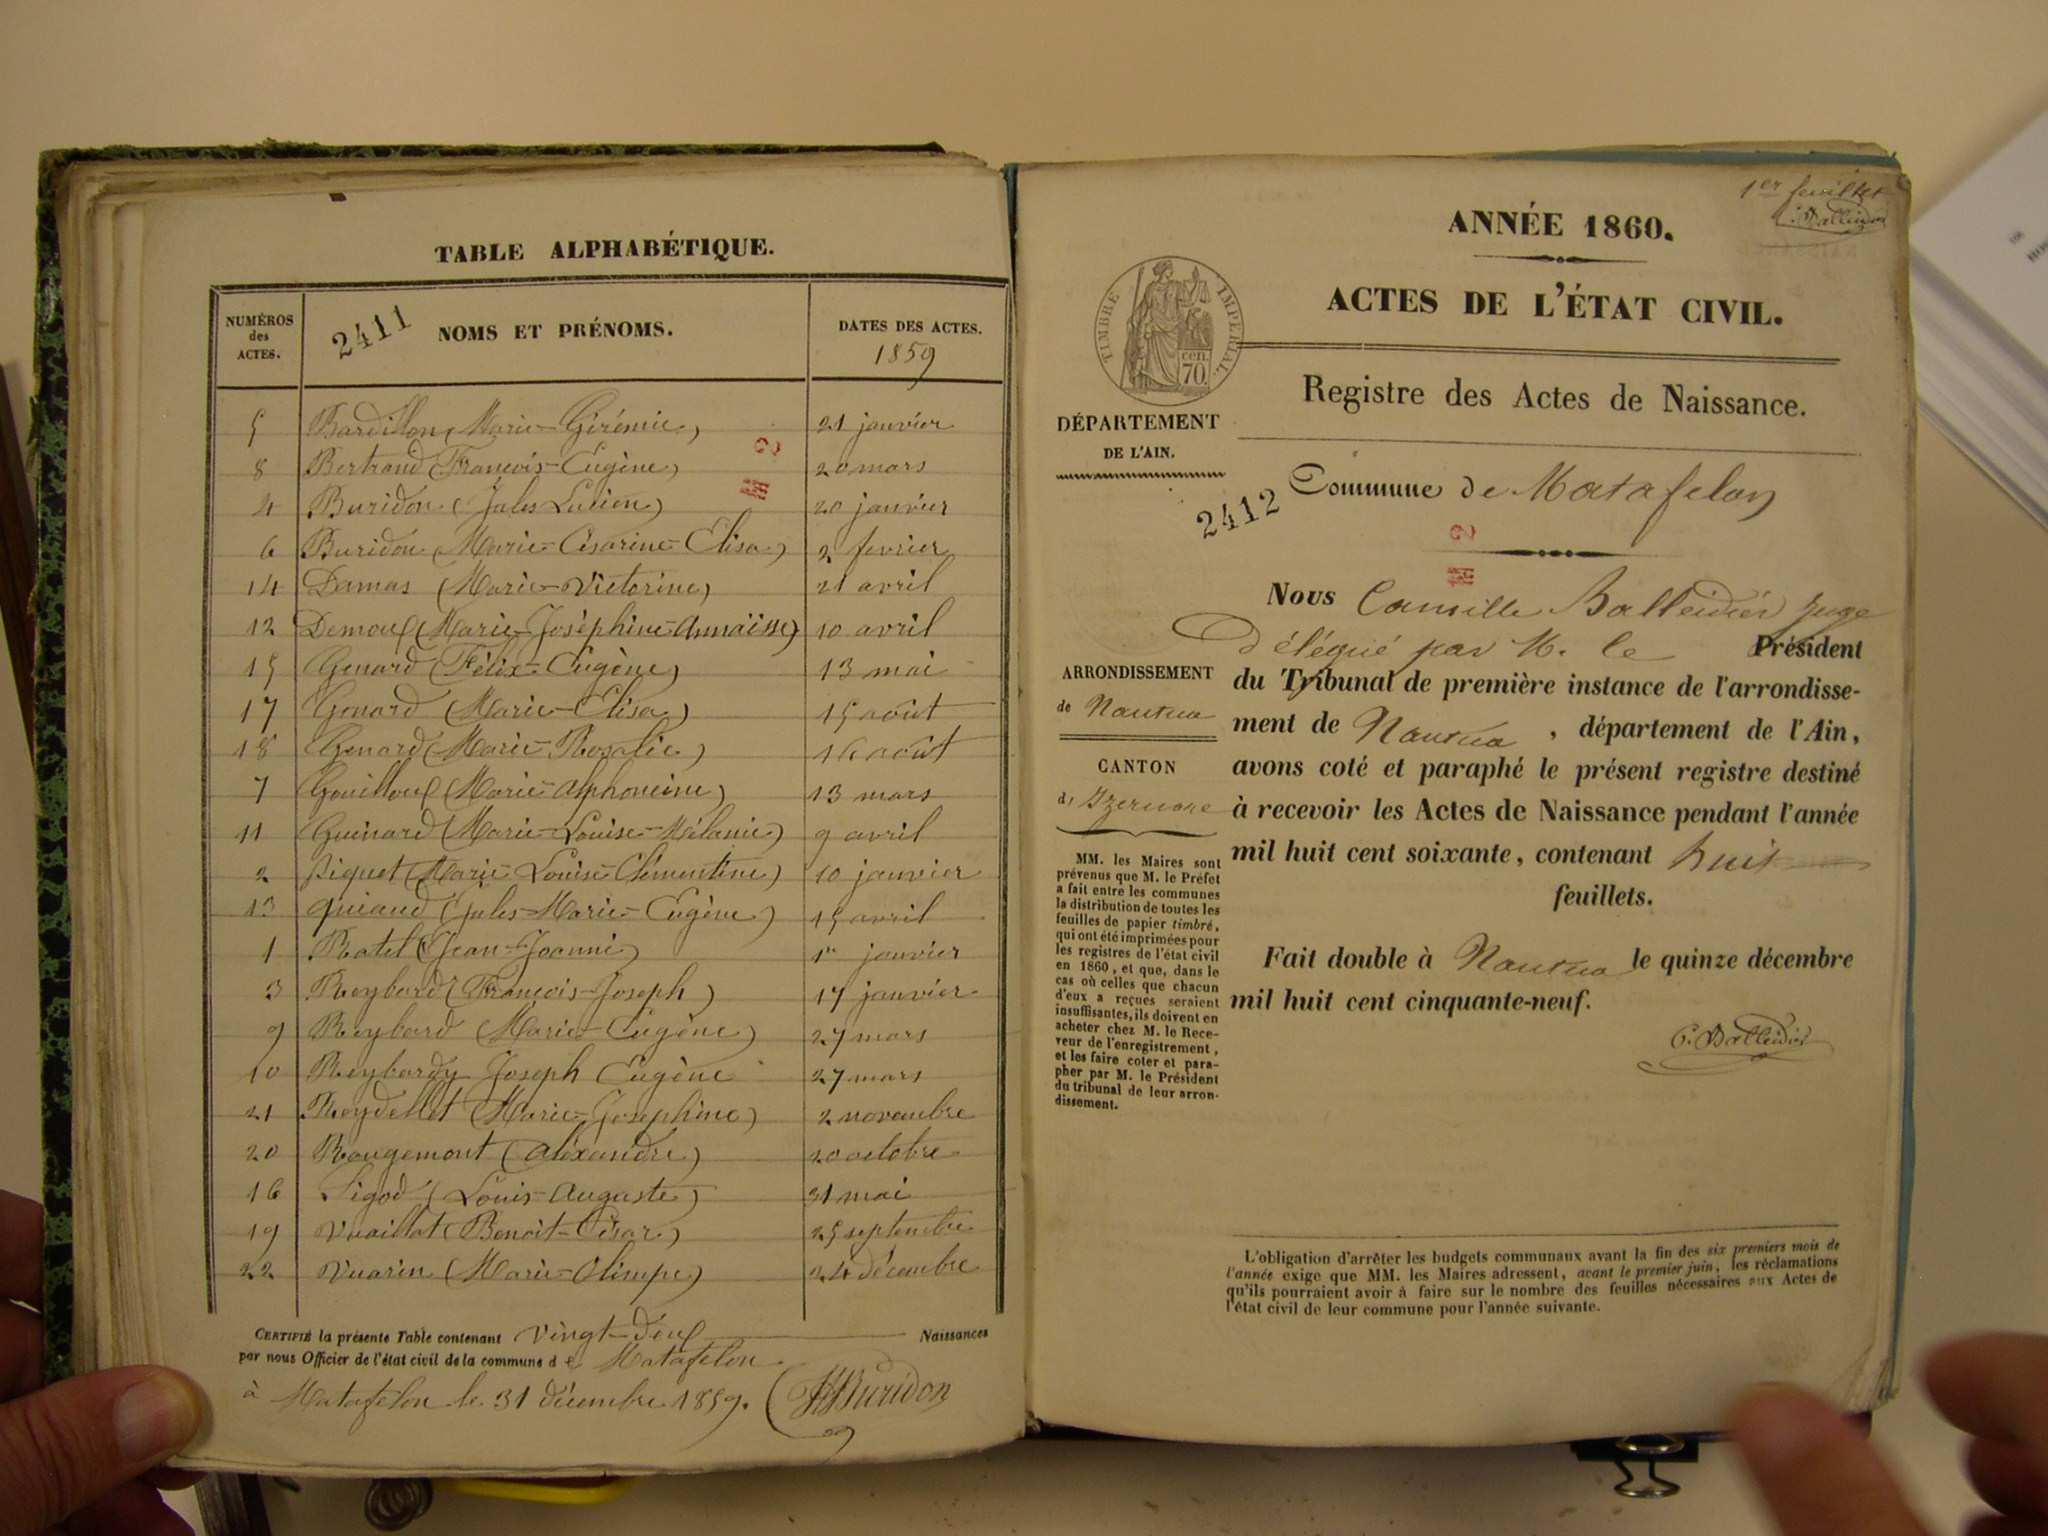 TABLE ALPHABÉTIQUE.
NUMÉROS des ACTES.
2411
NOMS ET PRÉNOMS.
DATES DES ACTES.
1859
5 Bardillon (Marie-Girémie) 21 janvier
8 Bertrand (François-Eugène) 20 mars
4 Buridon (Jules Lucien) 20 janvier
6 Buridon (Marie-Césarine-Elisa) 2 fevrier
14 Damas (Marie-Victorine) 21 avril
12 Demoux (Marie-Joséphine-Annaïsse) 10 avril
15 Genard (Félix-Eugène) 13 mai
17 Gonard (Marie-Elisa) 15 août
18 Genard (Marie-Rosalie) 16 août
7 Gouilloux (Marie-Alphoncine) 13 mars
11 Guinard (Marie-Louise-Mélanie) 9 avril
2 Piquet (Marie-Louise-Clémentine) 10 janvier
13 Quiaud (Jules-Marie-Eugène) 15 avril
1 Ratel (Jean-Joanni) 1er janvier
3 Reybard (François-Joseph) 17 janvier
9 Reybard (Marie-Eugène) 27 mars
10 Reybardy Joseph Eugène 27 mars
21 Reydellet (Marie-Josephine) 2 novembre
20 Rougemont (Aléxandre) 20 octobre
16 Sigod (Louis-Auguste) 31 mai
19 Vuaillat (Benoit-César) 25 septembre
22 Vuarin (Marie-Olimpe) 24 décembre
CERTIFIÉ la présente Table contenant Vingt-deux Naissances
par nous Officier de l'état civil de la commune de Matafelon
à Matafelon le 31 décembre 1859. Buridon
1er feuillet
C. Balleidier
ANNÉE 1860.
ACTES DE L'ÉTAT CIVIL.
TIMBRE IMPÉRIAL.
70 cen.
DÉPARTEMENT
DE L'AIN.
Registre des Actes de Naissance.
2412
Commune de Matafelon
Nous Camille Balleidier juge
délégué par M. le Président
du Tribunal de première instance de l'arrondisse-
ment de Nantua, département de l'Ain,
avons coté et paraphé le présent registre destiné
à recevoir les Actes de Naissance pendant l'année
mil huit cent soixante, contenant huit
feuillets.
Fait double à Nantua le quinze décembre
mil huit cent cinquante-neuf.
C. Balleidier
ARRONDISSEMENT
de Nantua
CANTON
d'Izernore
MM. les Maires sont
prévenus que M. le Préfet
a fait entre les communes
la distribution de toutes les
feuilles de papier timbré,
qui ont été imprimées pour
les registres de l'état civil
en 1860, et que, dans le
cas où celles que chacun
d'eux a reçues seraient
insuffisantes, ils doivent en
acheter chez M. le Rece-
veur de l'enregistrement,
et les faire coter et para-
pher par M. le Président
du tribunal de leur arron-
dissement.
L'obligation d'arrêter les budgets communaux avant la fin des six premiers mois de
l'année exige que MM. les Maires adressent, avant le premier juin, les réclamations
qu'ils pourraient avoir à faire sur le nombre des feuilles nécessaires aux Actes de
l'état civil de leur commune pour l'année suivante.